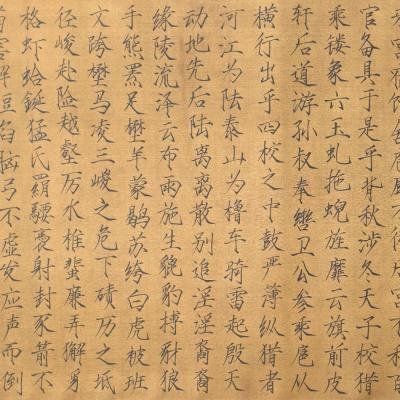 宫宿馆舍庖厨不徙后宫不移百
官备具于是乎背秋涉冬天子校猎
乘镂象六玉虬拖蜺旌靡云旗前皮
轩后道游孙叔奉辔卫公参乘扈从
横行出乎四校之中鼓严簿纵猎者
河江为陆泰山为橹车骑雷起殷天
动地先后陆离离散别追淫淫裔裔
缘陵流泽云布雨施生貔豹搏豺狼
手熊罴足樊羊蒙鹖苏绔白虎被班
文跨樊马凌三峻之危下碛历之坻
径峻赴险越壑厉水椎蜚廉弄獬豸
格虾蛤鋋猛氏羂騕褭射封豕箭不
苟害解脰陷脑弓不虚发应声而倒